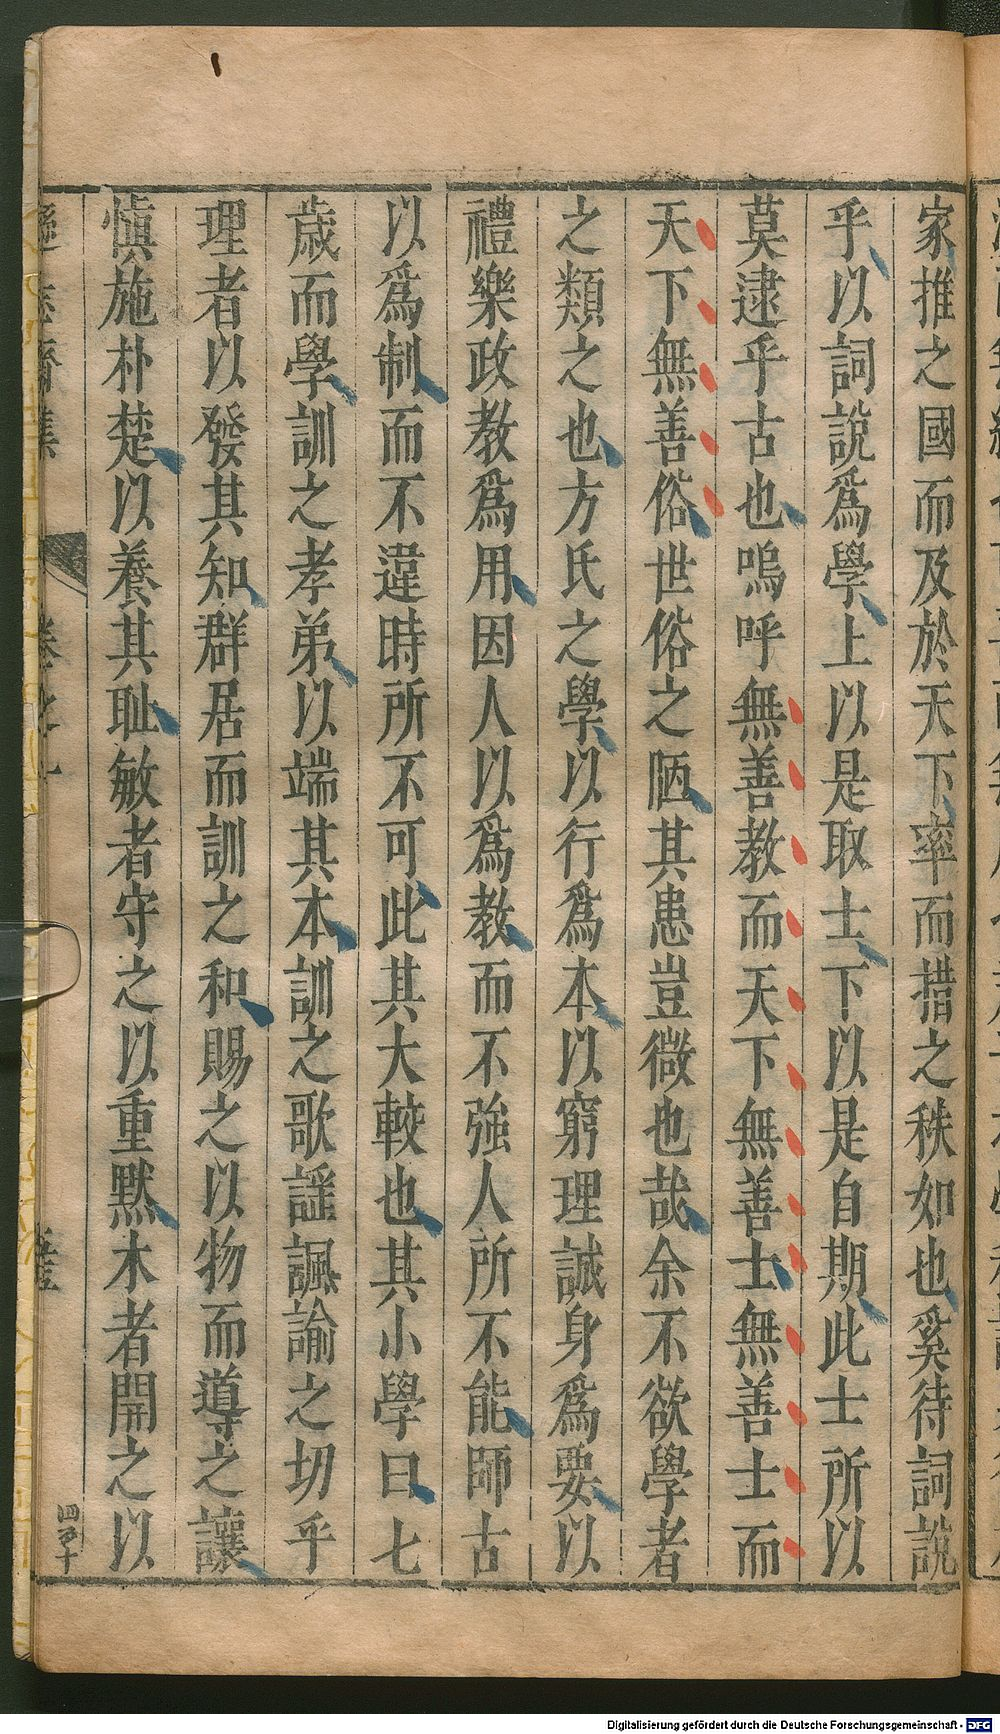 家推之國而及於天下率而措之秩如也奚待詞說
乎以詞說爲學上以是取士下以是自期此士所以
莫逮乎古也嗚呼無善教而天下無善士無善士而
天下無善俗世俗之陋其患豈微也哉余不欲學者
之類之也方氏之學以行爲本以窮理誠身爲要以
禮樂政教爲用因人以爲教而不強人所不能師古
以爲制而不違時所不可此其大較也其小學曰七
歲而學訓之孝弟以端其本訓之歌謡諷諭之切乎
理者以發其知群居而訓之和賜之以物而導之讓
慎施朴楚以養其耻敏者守之以重默木者開之以
遜志齋集
Digitalisierung gefördert durch die Deutsche Forschungsgemeinschaft - DFG